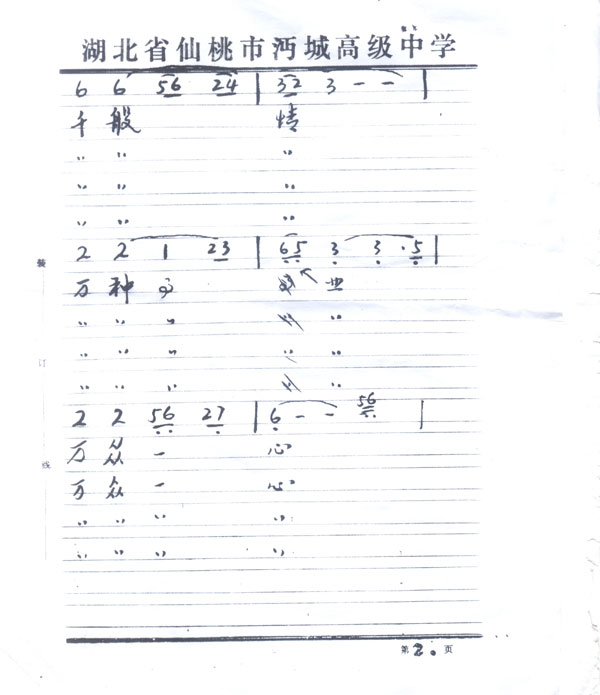 湖北省仙桃市沔城高级中学
6 6 56 24 | 32 3 – – |
千 般 情
〃 〃 〃
〃 〃 〃
〃 〃 〃
2 2 1 23 | 65 3 3 ·5 |
装
万 种 业
〃 〃 〃 〃 〃
订
〃 〃 〃 〃 〃
〃 〃 〃 〃 〃
2 2 56 27 | 6 – – 56 |
万 众 一 心
线
万 众 一 心
〃 〃 〃 〃
〃 〃 〃 〃
第 2. 页